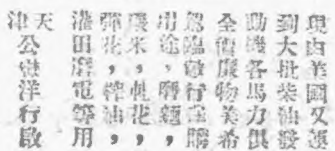 現由美國又運
到大批柴油發
動機各馬力俱
全價廉物美希
駕臨敝行購
用途，磨麵，
碾米，軋花，
彈花，榨油，
灌田磨電等用
天津公懋洋行啟